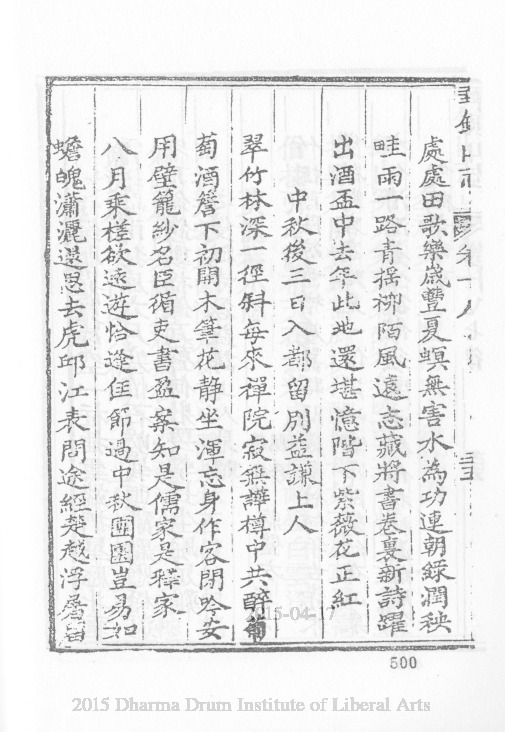 處處田歌樂歲豐夏螟無害水為功連朝綠潤秧
畦雨一路青搖柳陌風遠志藏將書卷裏新詩躍
出酒盃中去年此地還堪憶階下紫薇花正紅
中秋後三日入都留別益謙上人
翠竹林深一徑斜每來禪院寂無譁樽中共醉葡
萄酒簷下初開木筆花静坐渾忘身作客閉吟安
用壁籠紗名臣循吏書盈案知是儒家是釋家
八月乘槎欲遠遊恰逢佳節過中秋團圞豈易如
蟾魄瀟灑還思去虎邱江表問途經楚越浮
500
15-04-17
2015 Dharma Drum Institute of Liberal Arts